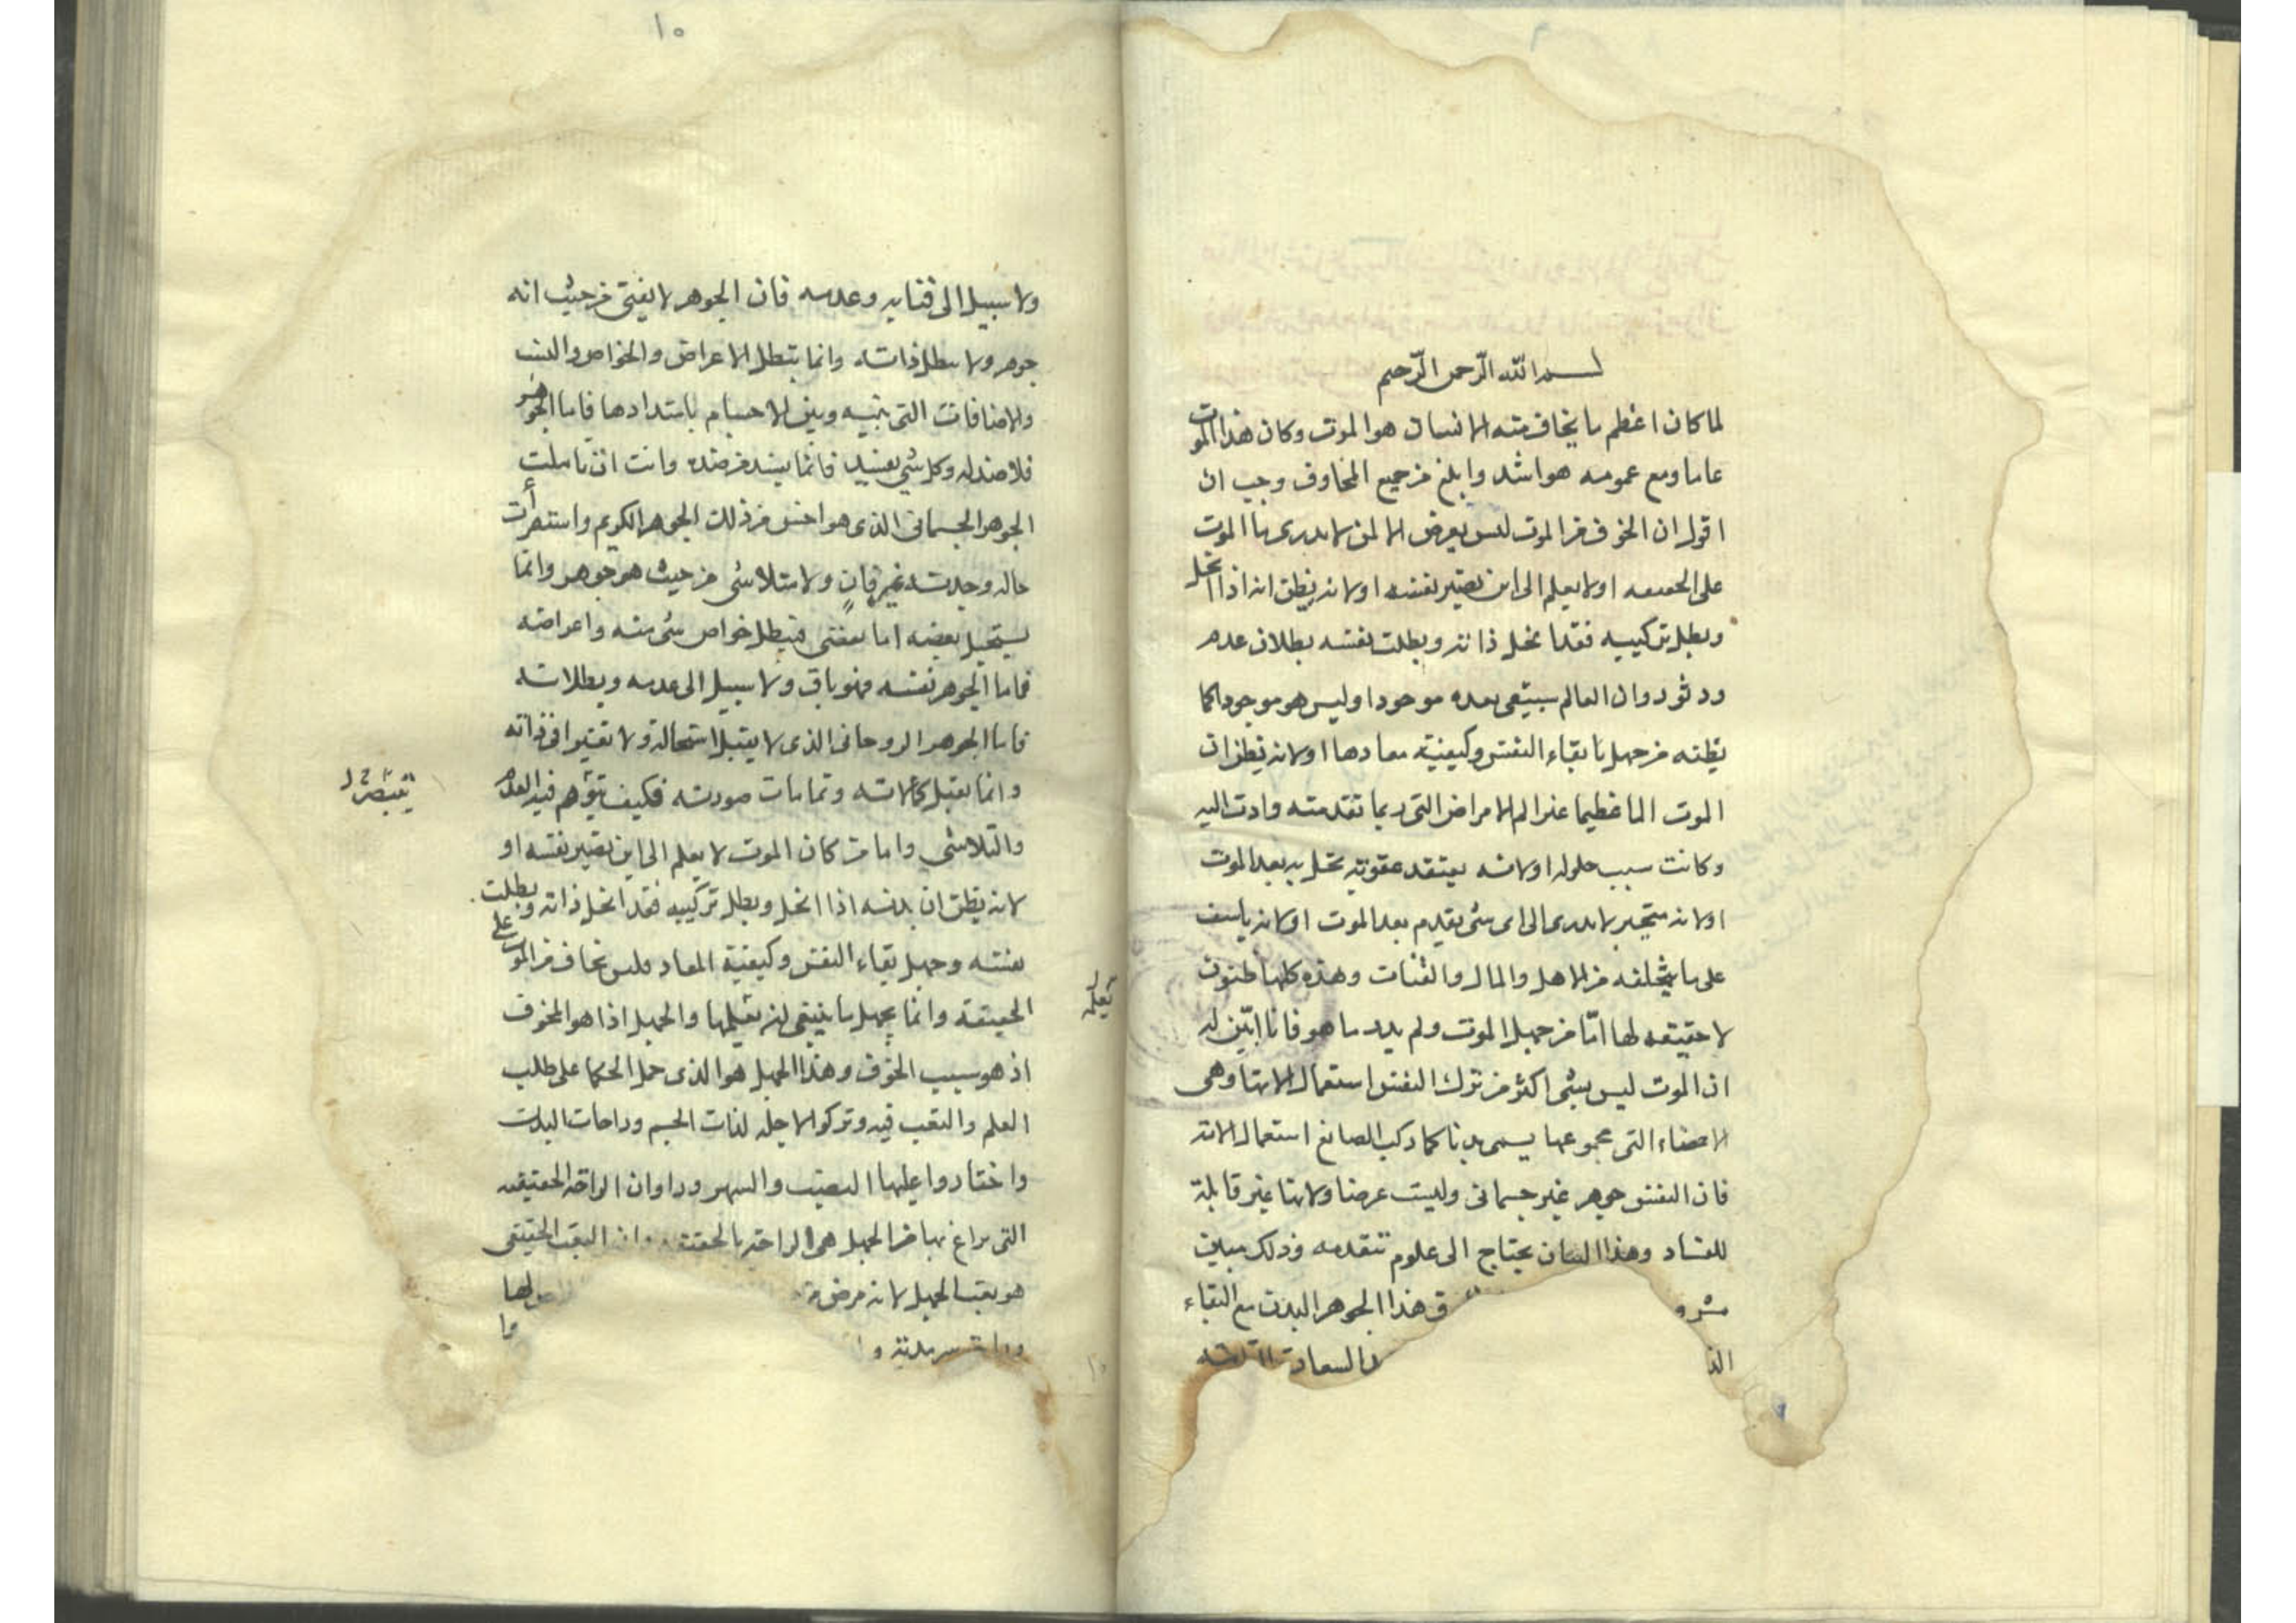 ٩
بسم الله الرحمن الرحيم
لما كان اعظم ما يخاف منه الانسان هو الموت وكان هذا الموت
عاما ومع عمومه هو اشد وابلغ من جميع المخاوف وجب ان
اقول ان الخوف من الموت ليس يعرض الا لمن لا يدرى ما الموت
على الحقيقه او لا يعلم الى اين تصير نفسه او لانه يظن انه اذا انحل
وبطل تركيبه فقد انحل ذاته وبطلت نفسه بطلان عدم
ودثور وان العالم سيبقى بعده موجودا وليس هو موجودا كما
يظنه من جهل بابقاء النفس وكيفية معادها او لانه يظن ان
الموت الما عظيما غير الم الامراض التى ربما تقدمته وادت اليه
وكانت سبب حلوله او لانه يعتقد عقوبة تحل به بعد الموت
او لانه متحير لا يدرى الى اى شى يقدم بعد الموت او لانه ياسف
على ما يخلفه من الاهل والمال والقنيات وهذه كلها ظنون
لا حقيقه لها اما من جهل الموت ولم يدر ما هو فانا ابين له
ان الموت ليس بشى اكثر من ترك النفس استعمال الاتها وهى
الاعضاء التى مجموعها يسمى بدنا كما يترك الصانع استعمال الاته
فان النفس جوهر غير جسمانى وليست عرضا ولانها غير قابلة
للفساد وهذا البيان يحتاج الى علوم تتقدمه وذلك مبين
مشرو ق هذا الجوهر البدن مع البقاء
الذ السعادة
١٠
ولا سبيل الى فنايه وعدمه فان الجوهر لا يفنى من حيث انه
جوهر ولا يبطل ذاته وانما يبطل الاعراض والخواص والنسب
والاضافات التى بينه وبين الاجسام باستدادها فاما الجوهر
فلا ضد له وكل شى يفسد فانما يفسد من ضده وانت ان تاملت
الجوهر الجسمانى الذى هو اخس من ذلك الجوهر الكريم واستقرأت
حاله وجدته غير فان ولا متلاشى من حيث هو جوهر وانما
يستحيل بعضه اما بعضى فيبطل خواص شى منه واعراضه
فاما الجوهر نفسه فهو باق ولا سبيل الى عدمه وبطلانه
فاما الجوهر الروحانى الذى لا يقبل استحالة ولا تغيرا فى ذاته
وانما يقبل كمالاته وتمامات صورته فكيف يتوهم فيه العدم
والتلاشي واما من كان الموت لا يعلم الى اين تصير نفسه او
لانه يظن ان بدنه اذا انحل وبطل تركيبه فقد انحل ذاته وبطلت
نفسه وجهل بقاء النفس وكيفية المعاد فليس يخاف من الموت على
الحقيقة وانما يجهل ما ينبغى ان يعلمها والجهل اذا هو المخوف
اذ هو سبب الخوف وهذا الجهل هو الذى حمل الحكما على طلب
العلم والتعب فيه وتركوا لاجله لذات الجسم وراحات البدن
واختاروا عليها النصب والسهر وراوا ان الراحة الحقيقه
التى يراغ بها من الجهل هى الراحة بالحقيقه وان التعب الحقيقى
هو تعب الجهل لانه مرض لها
سرمدية و
وا